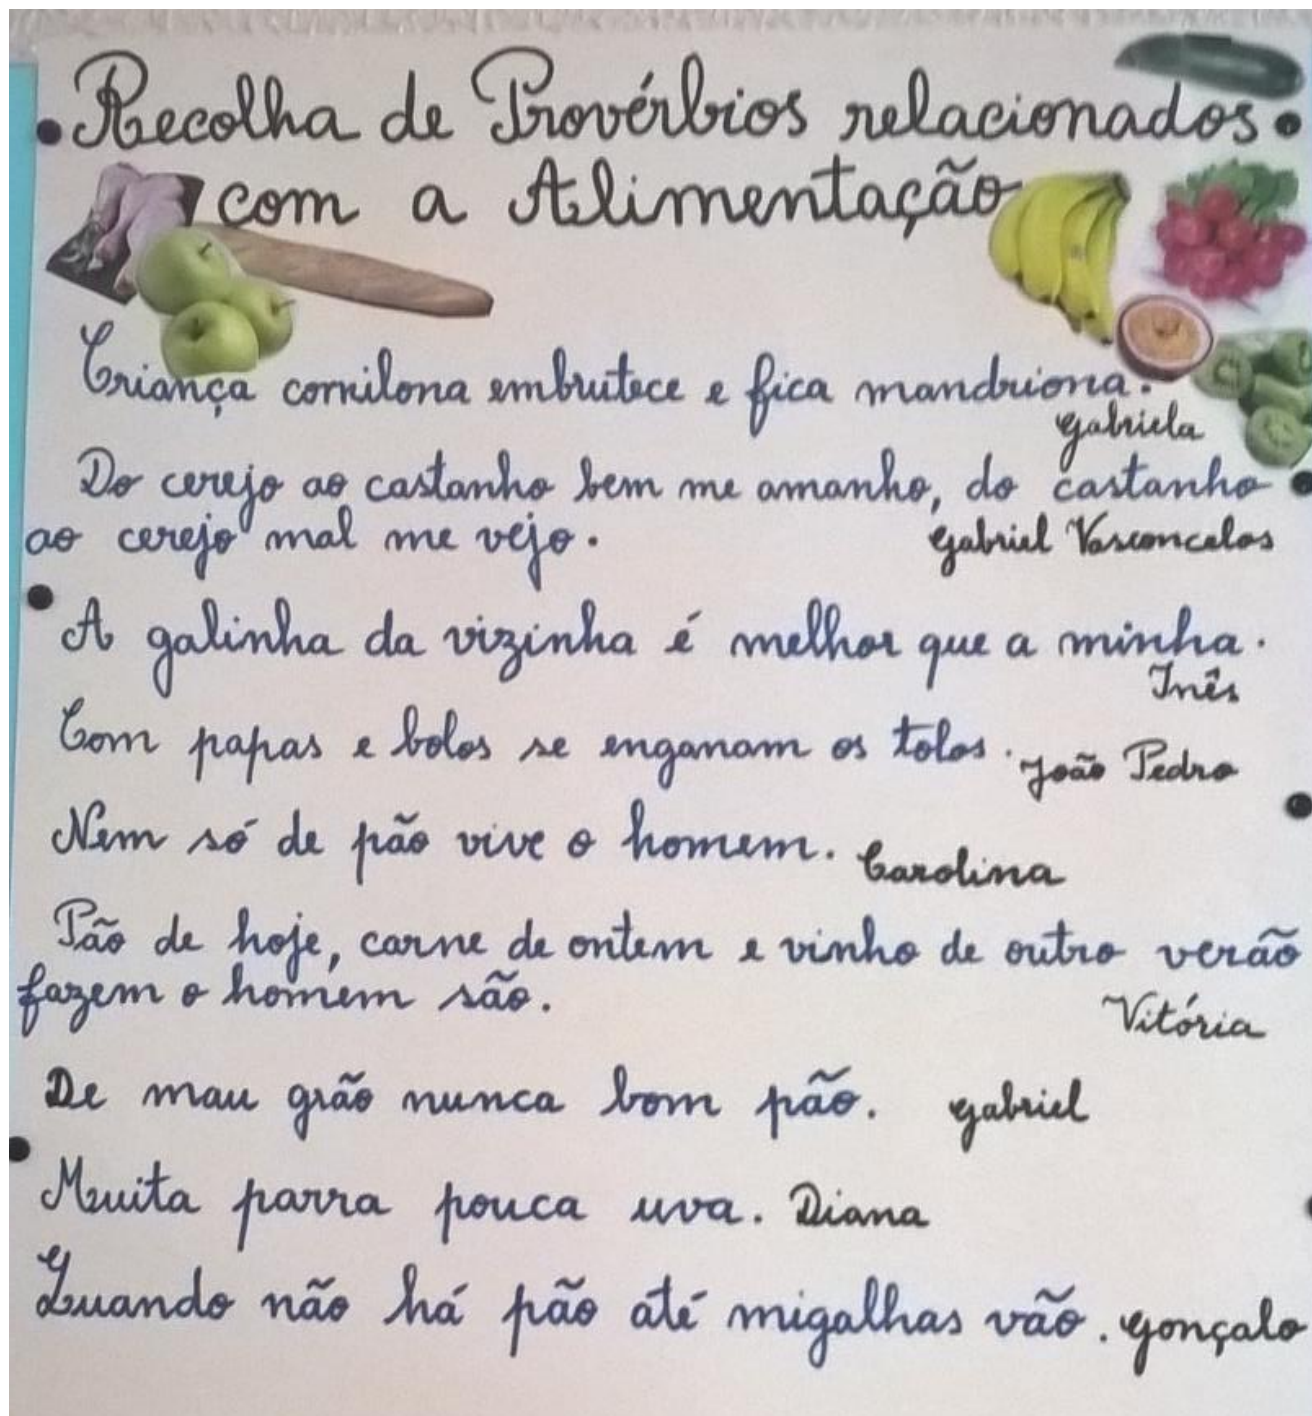 Recolha de Provérbios relacionados
com a Alimentação
Criança comilona embrutece e fica mandriona.
Gabriela
Do cerejo ao castanho bem me amanho, do castanho
ao cerejo mal me vejo. Gabriel Vasconcelos
A galinha da vizinha é melhor que a minha.
Inês
Com papas e bolos se enganam os tolos. João Pedro
Nem só de pão vive o homem. Carolina
Pão de hoje, carne de ontem e vinho de outro verão
fazem o homem são. Vitória
De mau grão nunca bom pão. Gabriel
Muita parra pouca uva. Diana
Quando não há pão até migalhas vão. Gonçalo